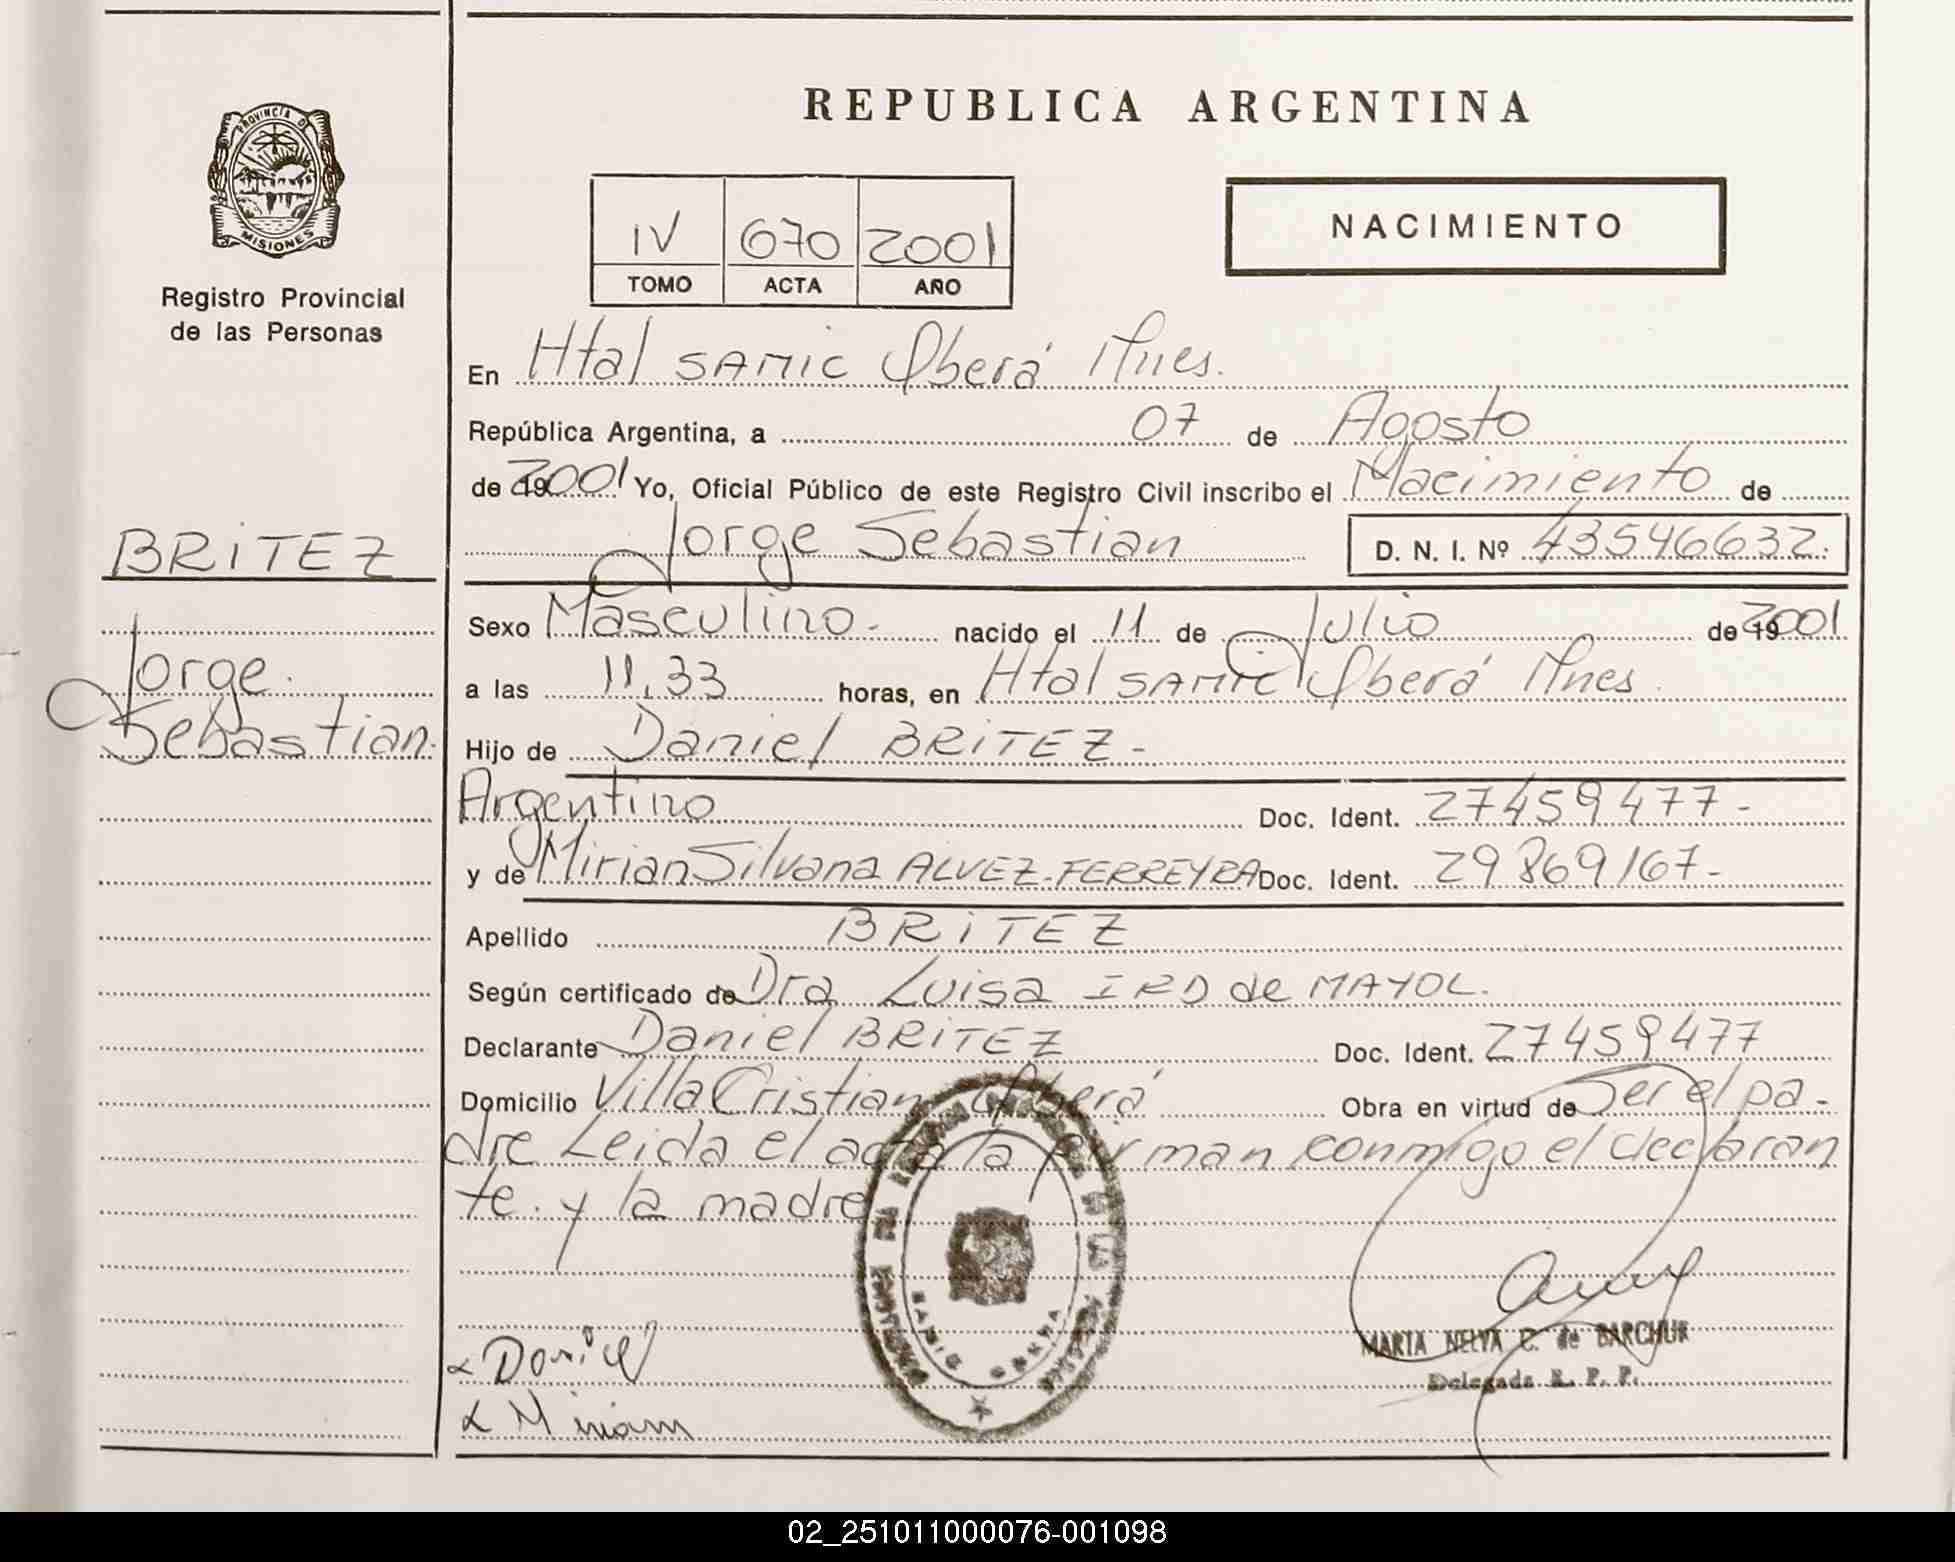 REPUBLICA ARGENTINA
PROVINCIA DE
MISIONES
Registro Provincial
de las Personas
IV 670 2001
TOMO ACTA AÑO
NACIMIENTO
En Htal SAMIC Oberá Mnes.
República Argentina, a 07 de Agosto
de 19 2001 Yo, Oficial Público de este Registro Civil inscribo el Nacimiento de
Jorge Sebastian D. N. I. Nº 43546632.
BRITEZ
Jorge.
Sebastian.
Sexo Masculino. nacido el 11 de Julio de 19 2001
a las 11,33 horas, en Htal SAMIC Oberá Mnes.
Hijo de Daniel BRITEZ -
Argentino Doc. Ident. 27459477-
y de Mirian Silvana ALVEZ-FERREYRA Doc. Ident. 29869167-
Apellido BRITEZ
Según certificado de Dra Luisa IRD de MAYOL.
Declarante Daniel BRITEZ Doc. Ident. 27459477
Domicilio Villa Cristian Oberá Obra en virtud de Ser el pa-
dre Leida el acta la firman conmigo el declaran
te. y la madre
MARTA NELVA C. de BARCHUK
Delegada R. P. P.
Daniel
Miriam
02_251011000076-001098